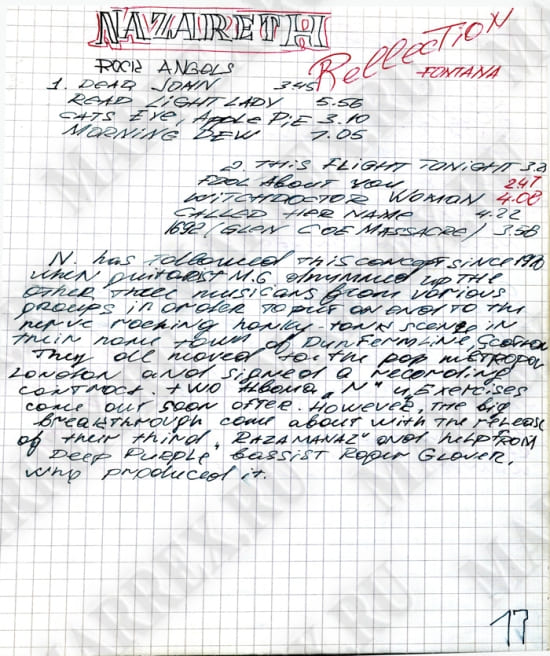 NAZARETH
Reflection
FONTANA
ROCK ANGELS
1. DEAR JOHN 3.45
READ LIGHT LADY 5.56
CATS EYE, Apple PiE 3.10
MORNING DEW 7.05
2 THIS FLIGHT TONIGHT
FOOL About You 247
WITCHDOCTOR WOMAN 4.08
CALLED HER NAME 4.22
1692 (GLEN COE MASSACRE) 358
N. has followed this concept since
when guitarist M.G drummed up the
other three musicians from various
groups in order to put an end to the
nerve rocking honky-tonk scene in
their home town of DunFermLine,
They all moved to the pop metropol
LONDON and signed a recording
contract. two Albums „N" u „Exercises
come out soon after. However, the big
Breakthrough come about with the release
of their third, „RAZAMANAZ" and help FROM
Deep Purple bassist Roger Glover,
who produced it.
17
MARREX.RU